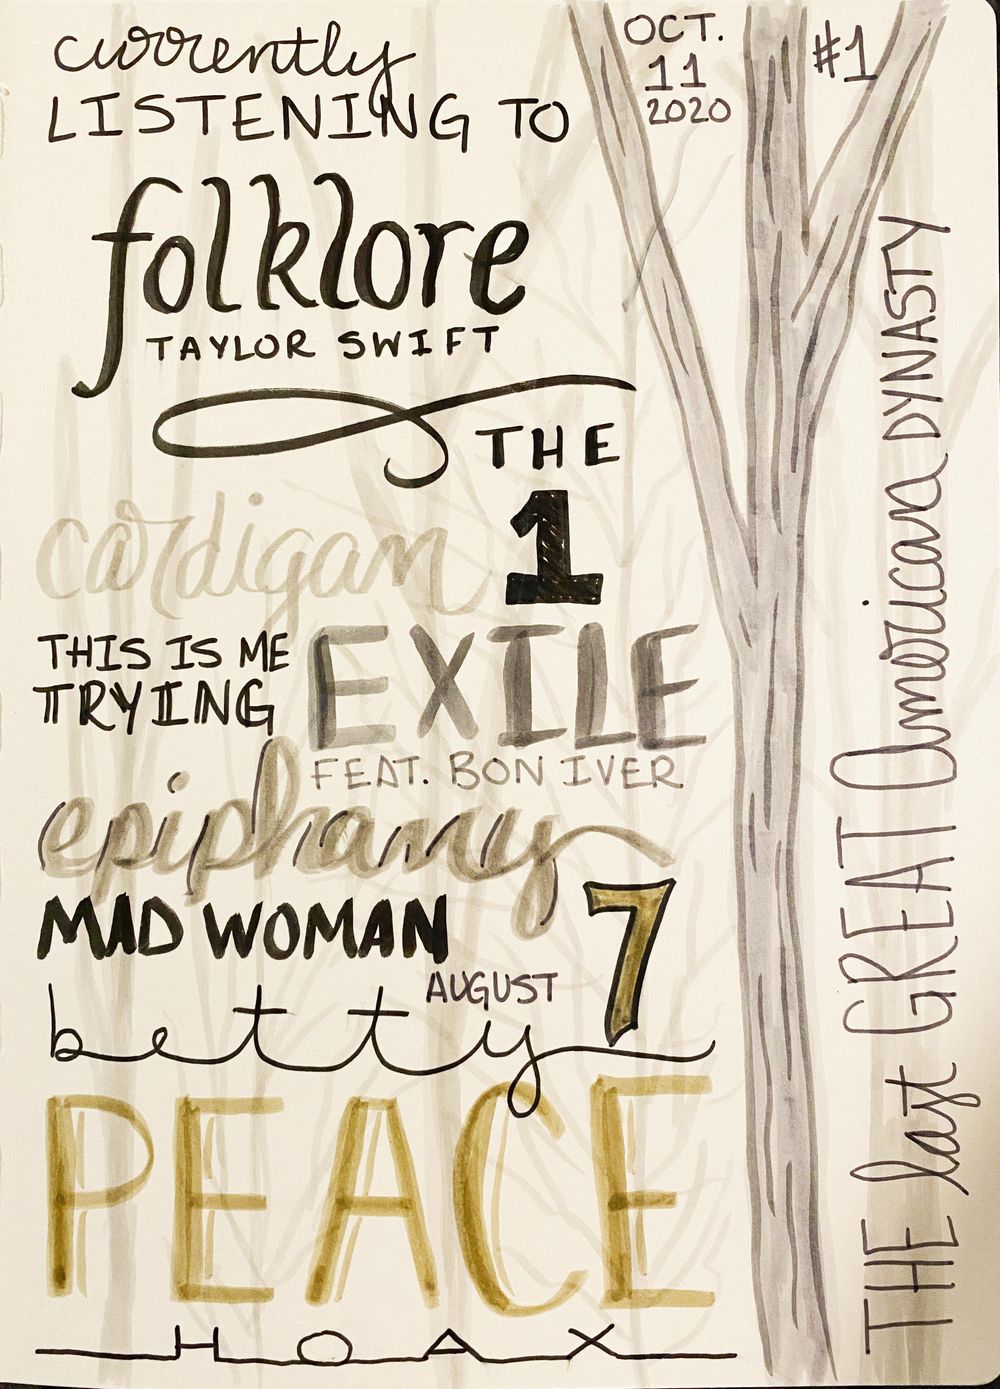 currently
LISTENING TO
OCT.
11
2020
#1
folklore
TAYLOR SWIFT
THE
1
cardigan
THIS IS ME
TRYING
EXILE
FEAT. BON IVER
epiphany
MAD WOMAN
7
AUGUST
betty
PEACE
HOAX
THE last GREAT American DYNASTY